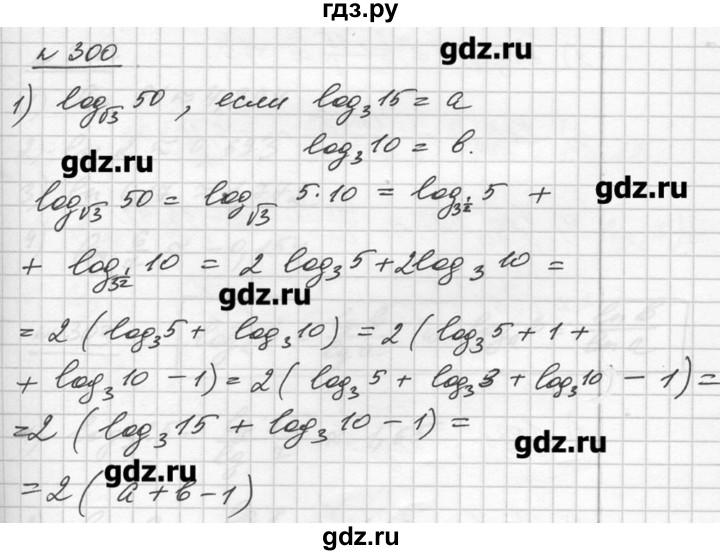 гдз.ру
gdz.ru
n 300
1) log√3 50, если log3 15 = a
log3 10 = b.
gdz.ru
gdz.ru
log√3 50 = log√3 5·10 = log3^1/2 5 +
+ log3^1/2 10 = 2 log3 5 + 2log3 10 =
gdz.ru
= 2 ( log3 5 + log3 10 ) = 2 ( log3 5 + 1 +
+ log3 10 - 1) = 2 ( log3 5 + log3 3 + log3 10 - 1) =
= 2 ( log3 15 + log3 10 - 1) =
gdz.ru
gdz.ru
= 2 ( a + b - 1)
gdz.ru